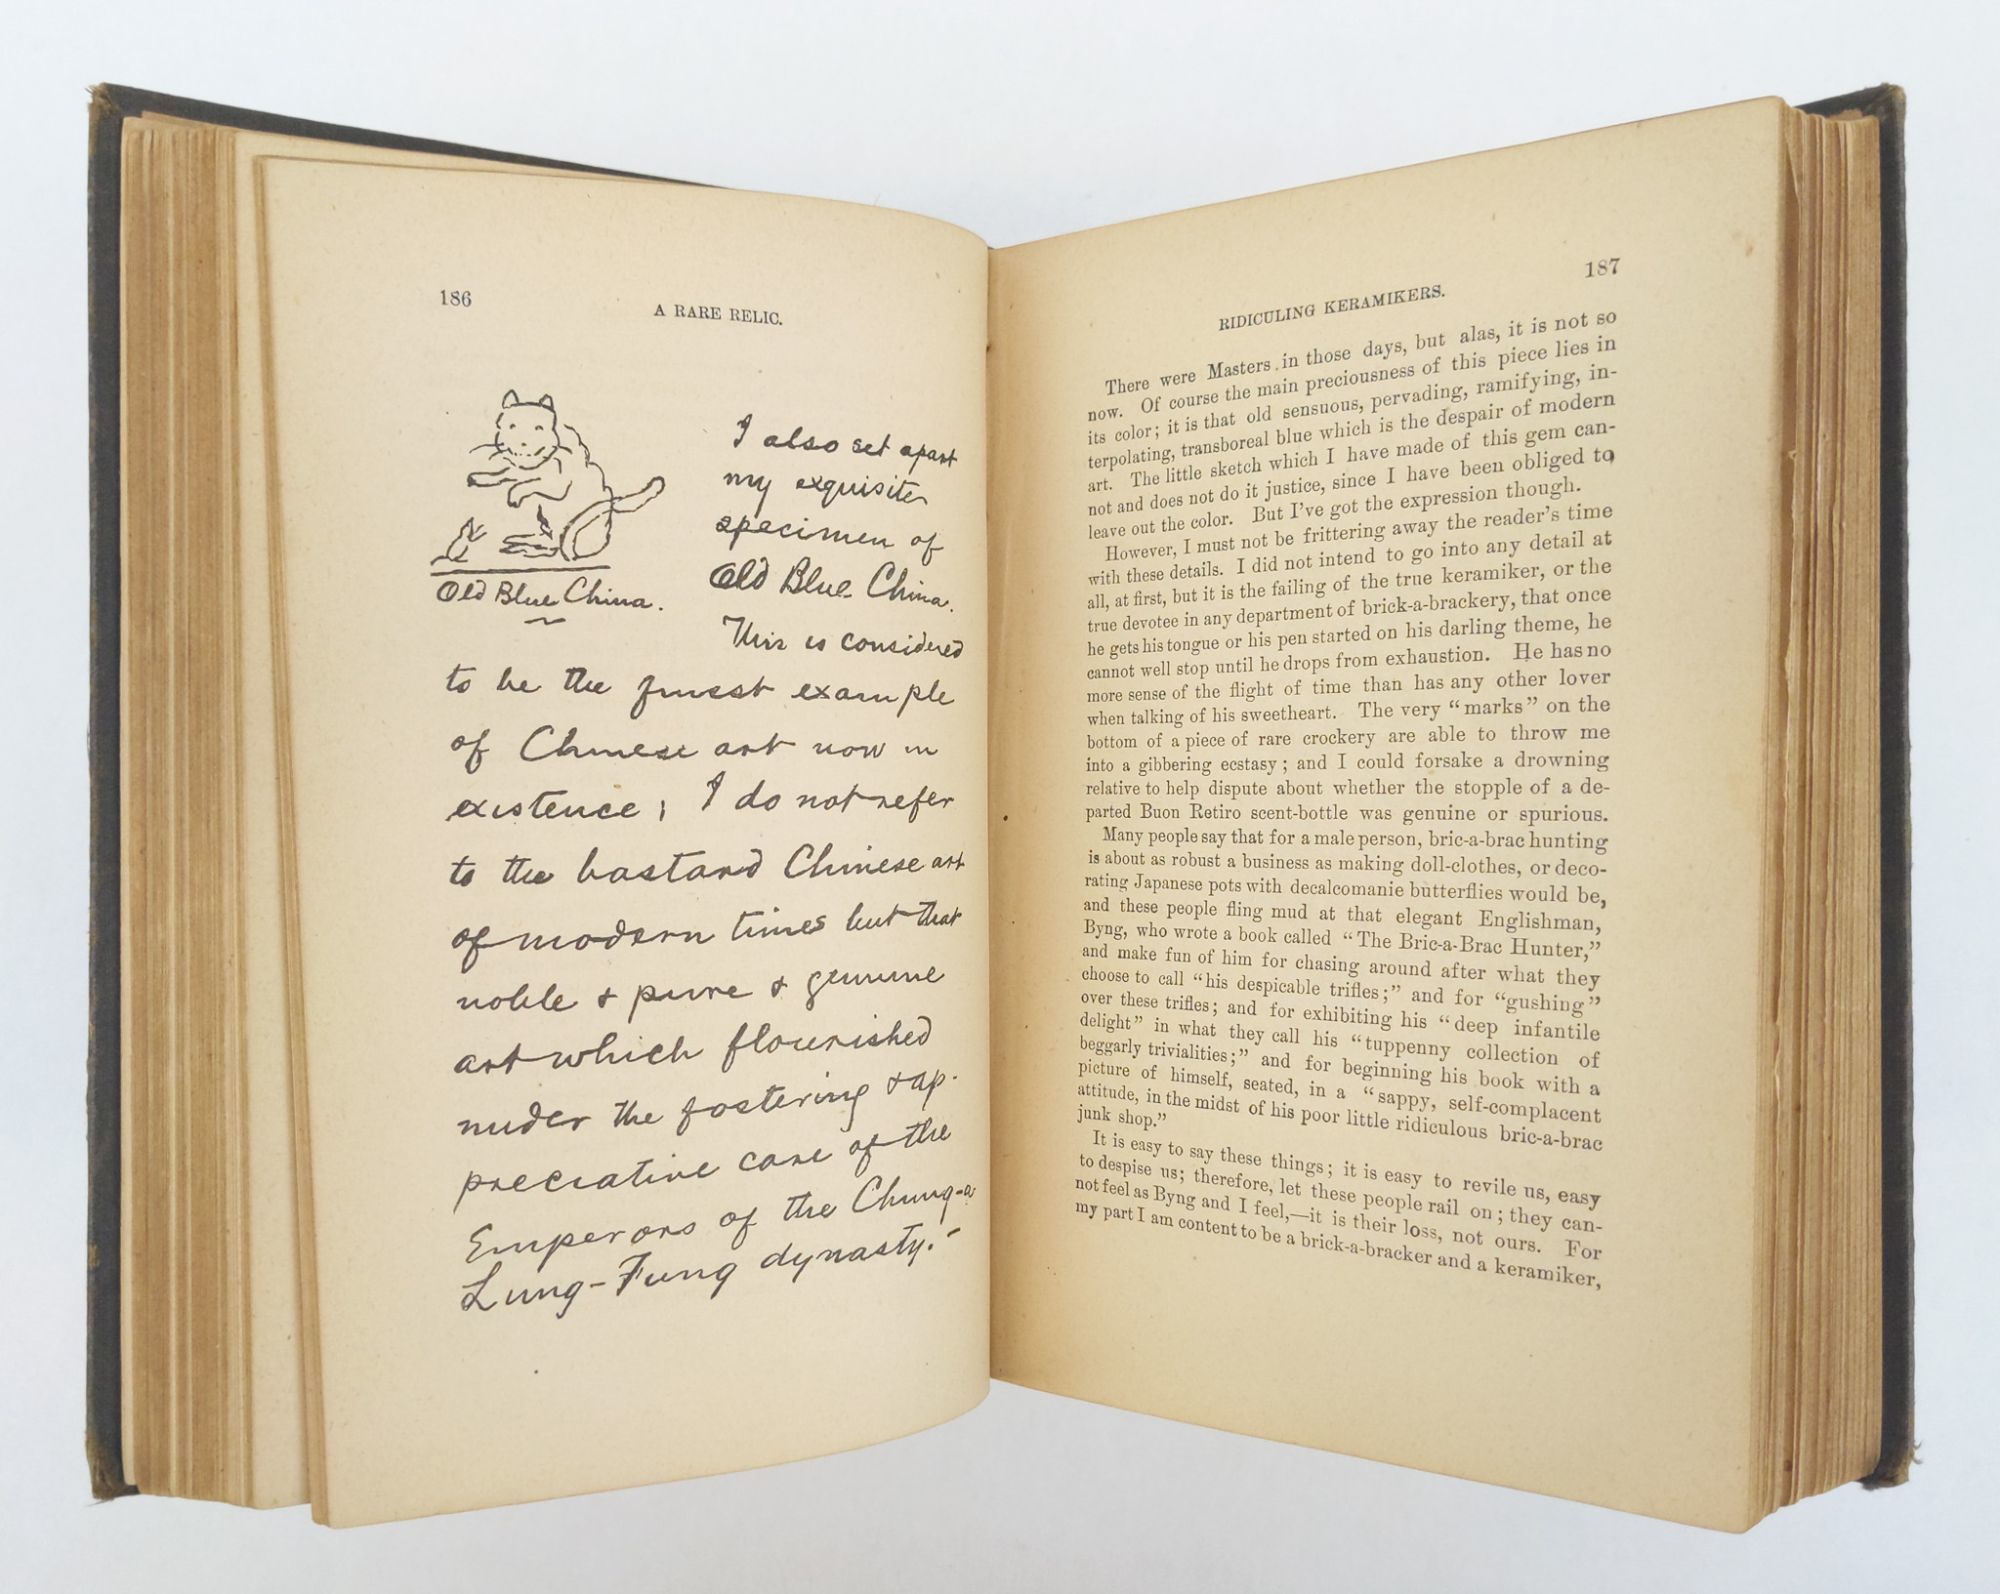 186
A RARE RELIC.
Old Blue China.
I also set apart
my exquisite
specimen of
Old Blue China.
This is considered
to be the finest example
of Chinese art now in
existence; I do not refer
to the bastard Chinese art
of modern times but that
noble & pure & genuine
art which flourished
under the fostering & ap-
preciative care of the
Emperors of the Chung-a-
Lung-Fung dynasty.
187
RIDICULING KERAMIKERS.
There were Masters in those days, but alas, it is not so
now. Of course the main preciousness of this piece lies in
its color; it is that old sensuous, pervading, ramifying, in-
terpolating, transboreal blue which is the despair of modern
art. The little sketch which I have made of this gem can-
not and does not do it justice, since I have been obliged to
leave out the color. But I've got the expression though.
However, I must not be frittering away the reader's time
with these details. I did not intend to go into any detail at
all, at first, but it is the failing of the true keramiker, or the
true devotee in any department of brick-a-brackery, that once
he gets his tongue or his pen started on his darling theme, he
cannot well stop until he drops from exhaustion. He has no
more sense of the flight of time than has any other lover
when talking of his sweetheart. The very "marks" on the
bottom of a piece of rare crockery are able to throw me
into a gibbering ecstasy; and I could forsake a drowning
relative to help dispute about whether the stopple of a de-
parted Buon Retiro scent-bottle was genuine or spurious.
Many people say that for a male person, bric-a-brac hunting
is about as robust a business as making doll-clothes, or deco-
rating Japanese pots with decalcomanie butterflies would be,
and these people fling mud at that elegant Englishman,
Byng, who wrote a book called "The Bric-a-Brac Hunter,"
and make fun of him for chasing around after what they
choose to call "his despicable trifles;" and for "gushing"
over these trifles; and for exhibiting his "deep infantile
delight" in what they call his "tuppenny collection of
beggarly trivialities;" and for beginning his book with a
picture of himself, seated, in a "sappy, self-complacent
attitude, in the midst of his poor little ridiculous bric-a-brac
junk shop."
It is easy to say these things; it is easy to revile us, easy
to despise us; therefore, let these people rail on; they can-
not feel as Byng and I feel,—it is their loss, not ours. For
my part I am content to be a brick-a-bracker and a keramiker,